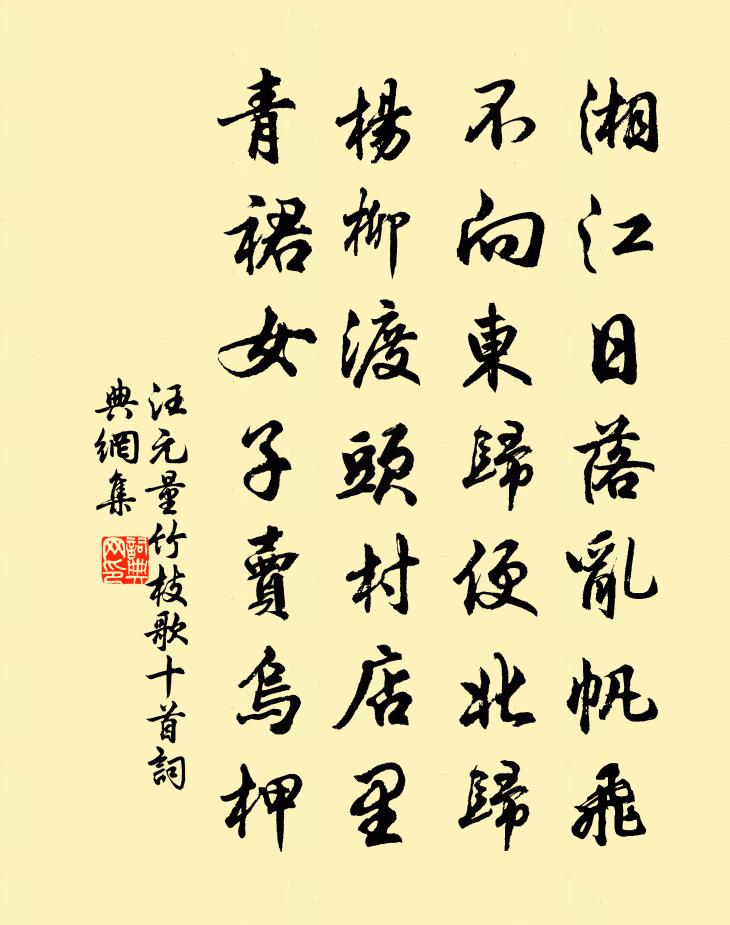 湘江日落亂帆飛
不向東歸便北歸
楊柳渡頭村店里
青裙女子賣烏椑
汪元量竹枝歌十首詞
典網集
詞典
网印